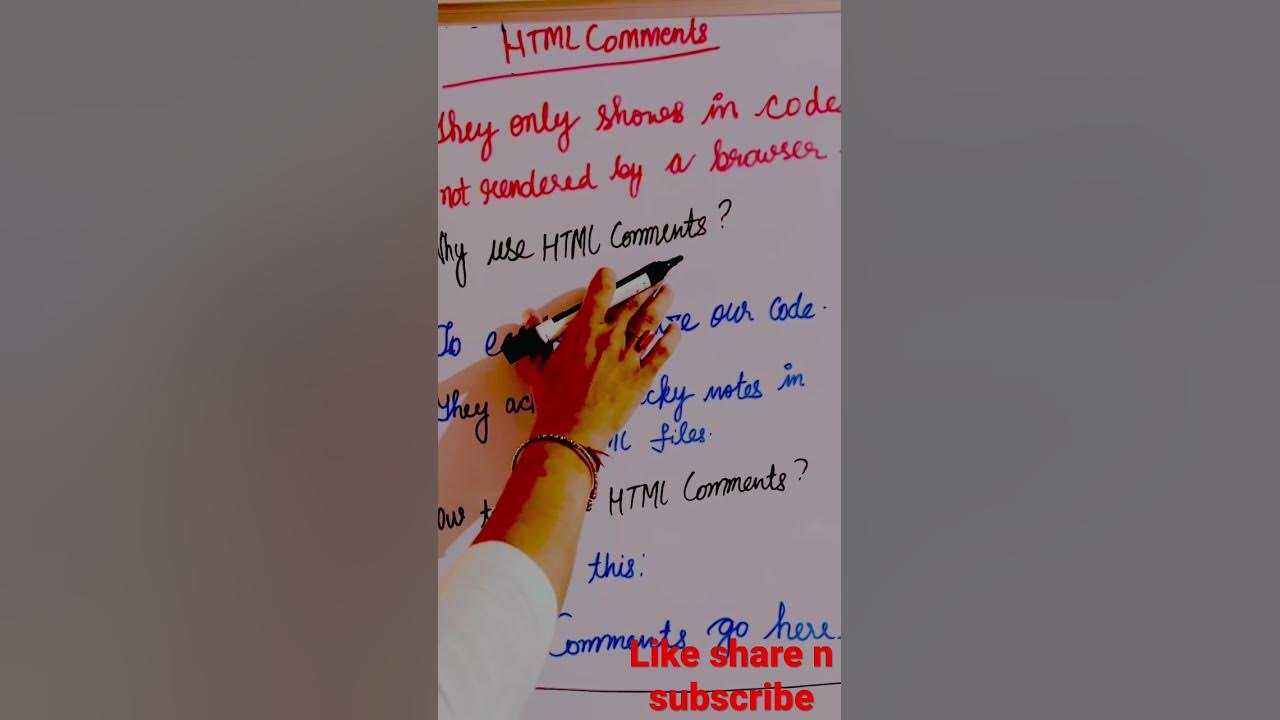 HTML Comments
They only shows in code
not rendered by a browser
Why use HTML Comments?
To our code.
They notes in
files.
HTML Comments?
this:
Comments go here.
Like share n
subscribe